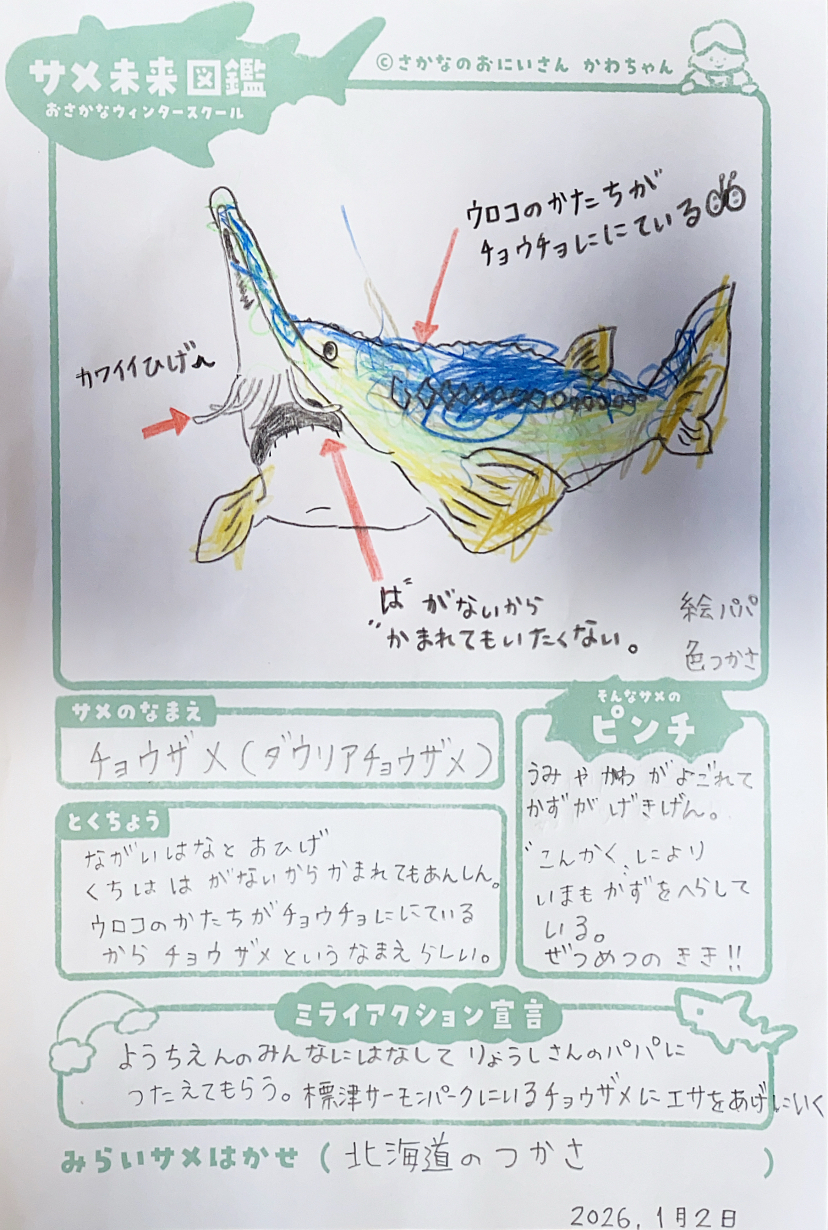 サメ未来図鑑
おさかなウィンタースクール
©さかなのおにいさん かわちゃん
ウロコのかたちが
チョウチョににている
カワイイひげ
は がないから
かまれてもいたくない。
絵パパ
色つかさ
サメのなまえ
チョウザメ(ダウリアチョウザメ)
とくちょう
ながいはなと おひげ
くちは は がないからかまれてもあんしん。
ウロコのかたちがチョウチョににている
から チョウザメというなまえらしい。
そんなサメの
ピンチ
うみ や かわ がよごれて
かずが げきげん。
こんかく、により
いまも かずをへらして
いる。
ぜつめつの きき!!
ミライアクション宣言
ようちえんのみんなにはなして りょうしさんのパパに
つたえてもらう。標津サーモンパークにいるチョウザメにエサをあげにいく
みらいサメはかせ(北海道のつかさ)
2026,1月2日